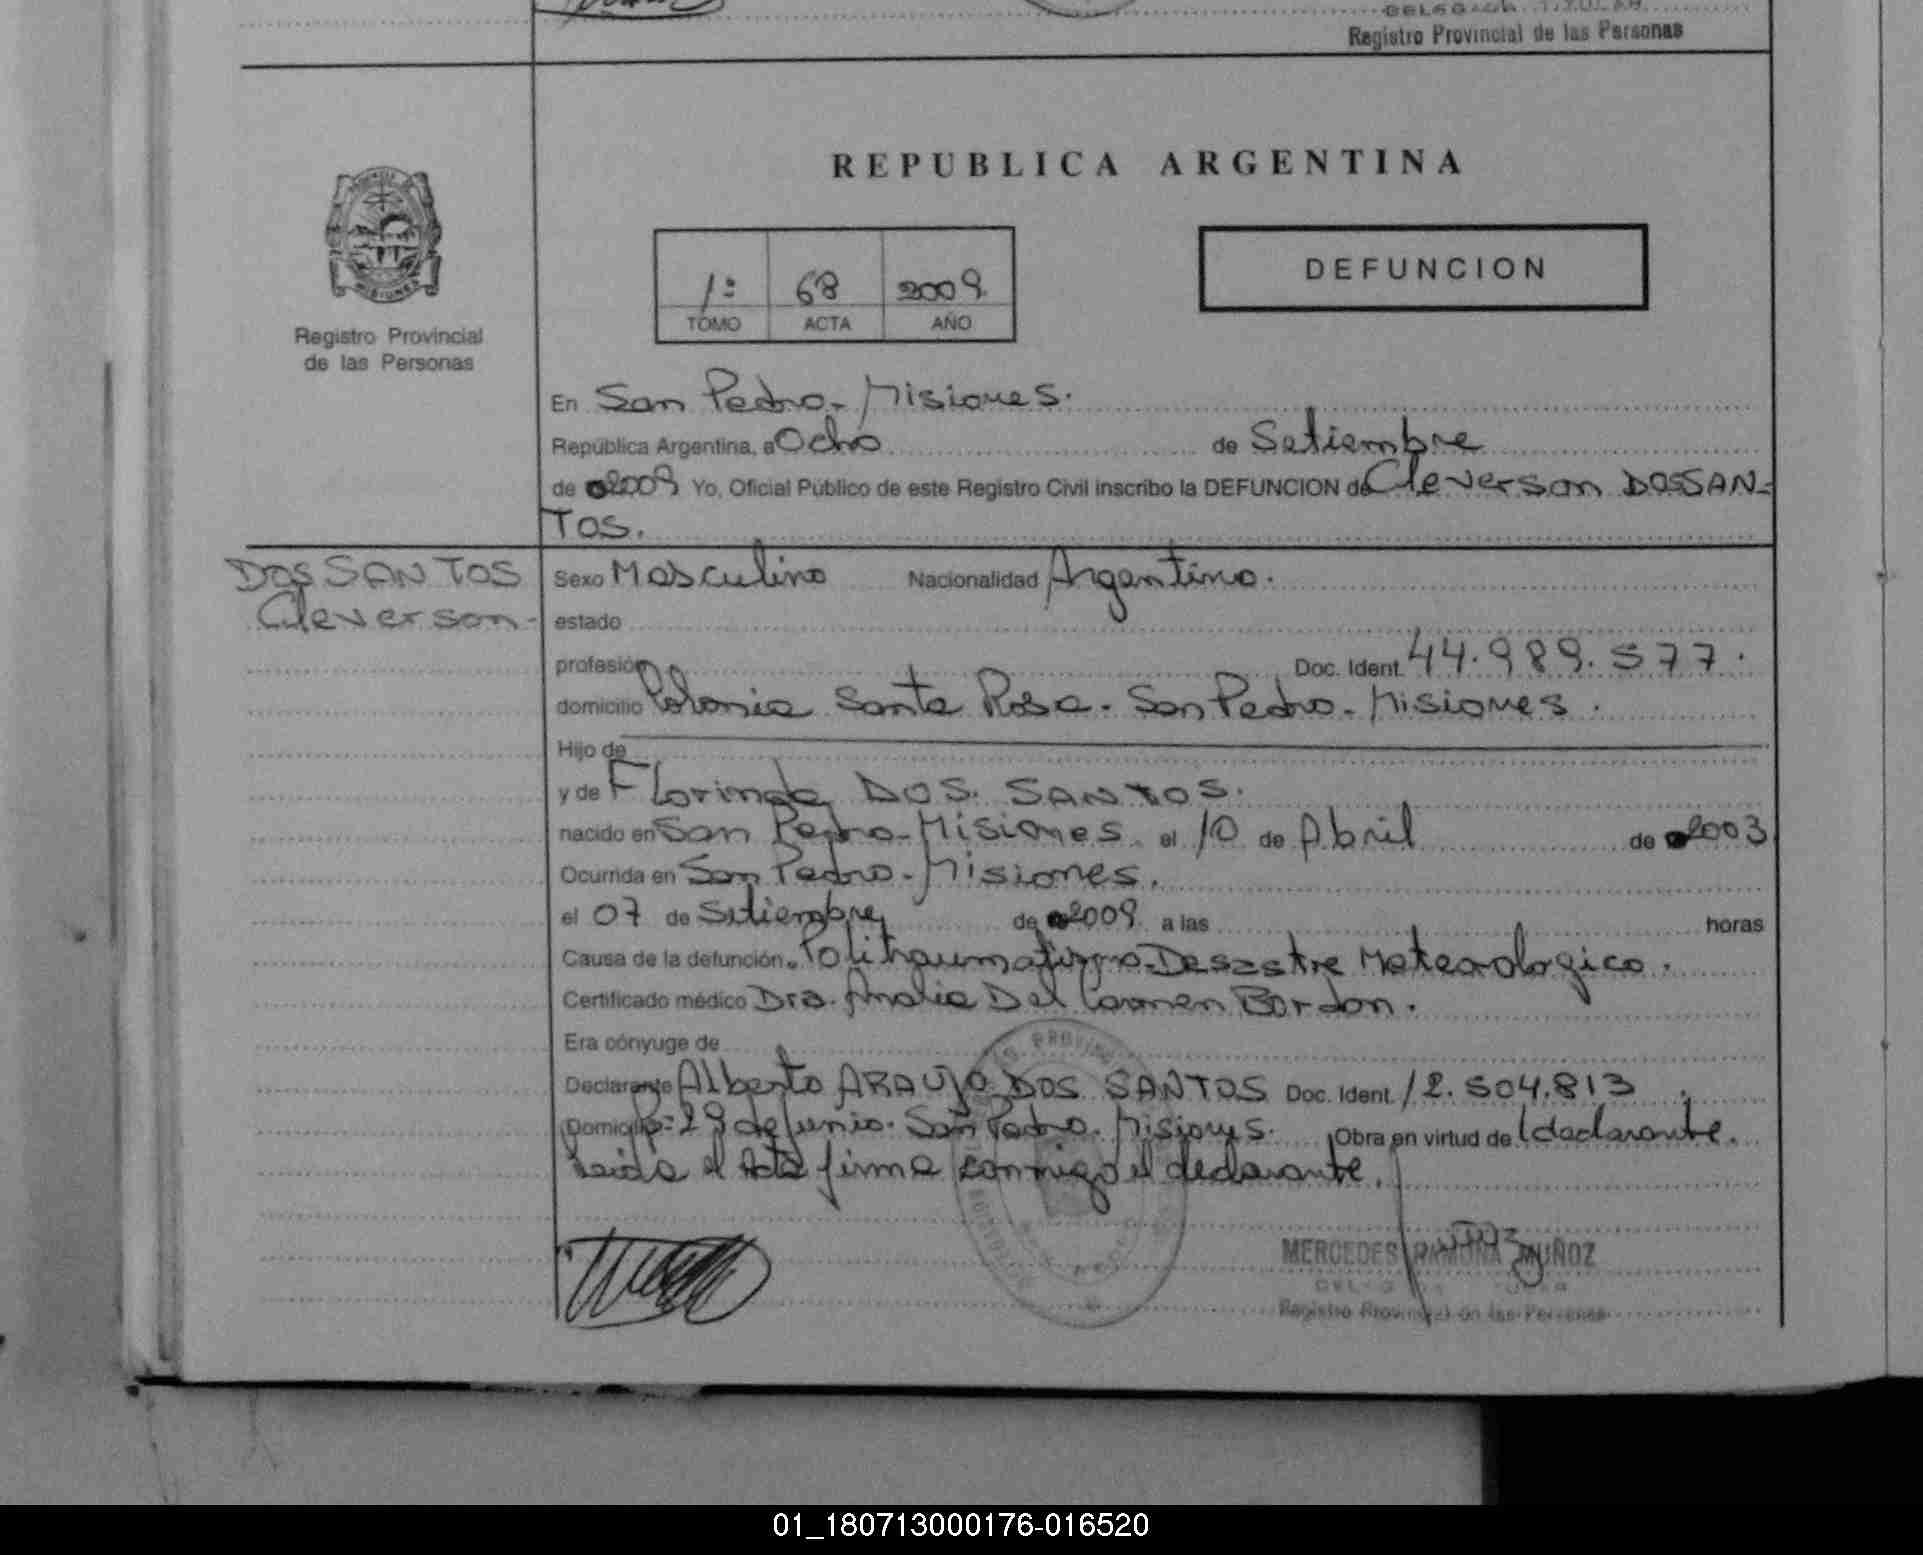 Registro Provincial de las Personas
REPUBLICA ARGENTINA
1º 68 2009
TOMO ACTA AÑO
DEFUNCION
MISIONES
Registro Provincial
de las Personas
En San Pedro - Misiones.
República Argentina, a Ocho de Setiembre
de 2009 Yo, Oficial Público de este Registro Civil inscribo la DEFUNCION de Cleverson DOSSAN-
TOS.
DOS SANTOS
Cleverson -
Sexo Masculino Nacionalidad Argentino.
estado
profesión Doc. Ident. 44.989.577.
domicilio Colonia Santa Rosa - San Pedro - Misiones.
Hijo de
y de Florinda DOS SANTOS.
nacido en San Pedro - Misiones. el 10 de Abril de 2003
Ocurrida en San Pedro - Misiones.
el 07 de Setiembre de 2009 a las horas
Causa de la defunción Politraumatismo - Desastre Meteorologico.
Certificado médico Dra. Analia Del Carmen Bordon.
Era cónyuge de
Declarante Alberto ARAUJO DOS SANTOS Doc. Ident. 12.504.813
Domicilio Bº 29 de Junio. San Pedro - Misiones. Obra en virtud de declarante.
Leida el Acta firma conmigo el declarante.
MERCEDES RAMONA MUÑOZ
Registro Provincial de las Personas
01_180713000176-016520